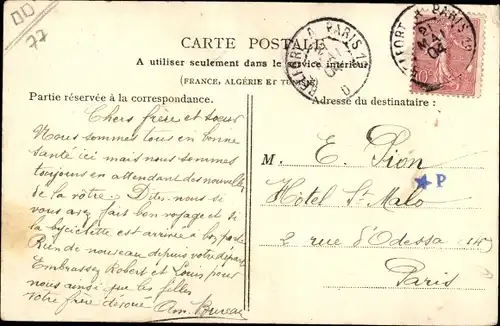 77
CARTE POSTALE
A utiliser seulement dans le service intérieur
(FRANCE, ALGÉRIE ET TUNISIE)
Partie réservée à la correspondance.
Adresse du destinataire :
BELFORT A PARIS 1°
MAI
04
D
BELFORT A PARIS 1°
MAI
04
10
Chers frère et soeur
Nous sommes tous en bonne
santé ici mais nous sommes
toujours en attendant des nouvelles
de la vôtre. Dites nous si
vous avez fait bon voyage et si
la bycielette est arrivée à bon port
Rien de nouveau depuis votre départ
Embrassez Robert et Louis pour
nous ainsi que les filles
votre frère dévoué Am. Bureau
M. E. Pion
Hôtel St Malo
P
2 rue d'Odessa
Paris